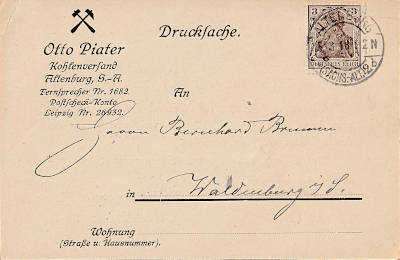 Drucksache.
Otto Piater
Kohlenversand
Altenburg, S.-A.
Fernsprecher Nr. 1682.
Postscheck-Konto
Leipzig Nr. 26932.
3 3
DEUTSCHES REICH
ALTENBURG
2 N
(SACHS.-ALT.) 2
b
An
Herrn Bernhard
in Waldenburg i/S.
Wohnung
(Straße u. Hausnummer).